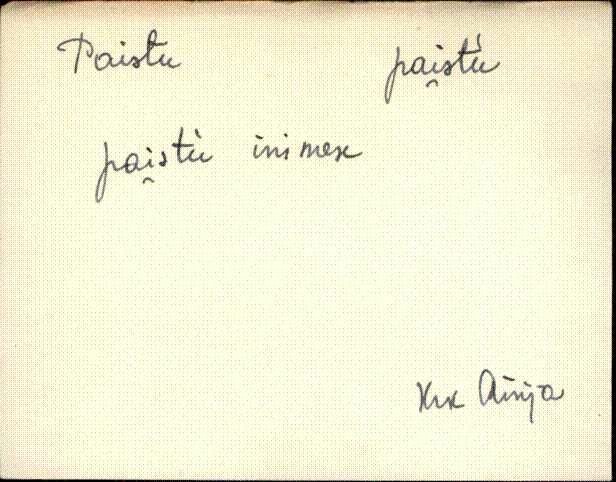 Paistu pai̯st́u
pai̯st́u inimex
Krk Ainja